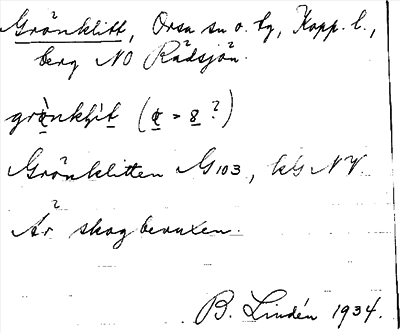 Grönklitt, Orsa sn o. hg, Kopp. l.,
berg NO Rädsjön.
Grönklitten G103, bl NV
Är skogbevuxen.
B. Lindén 1934.